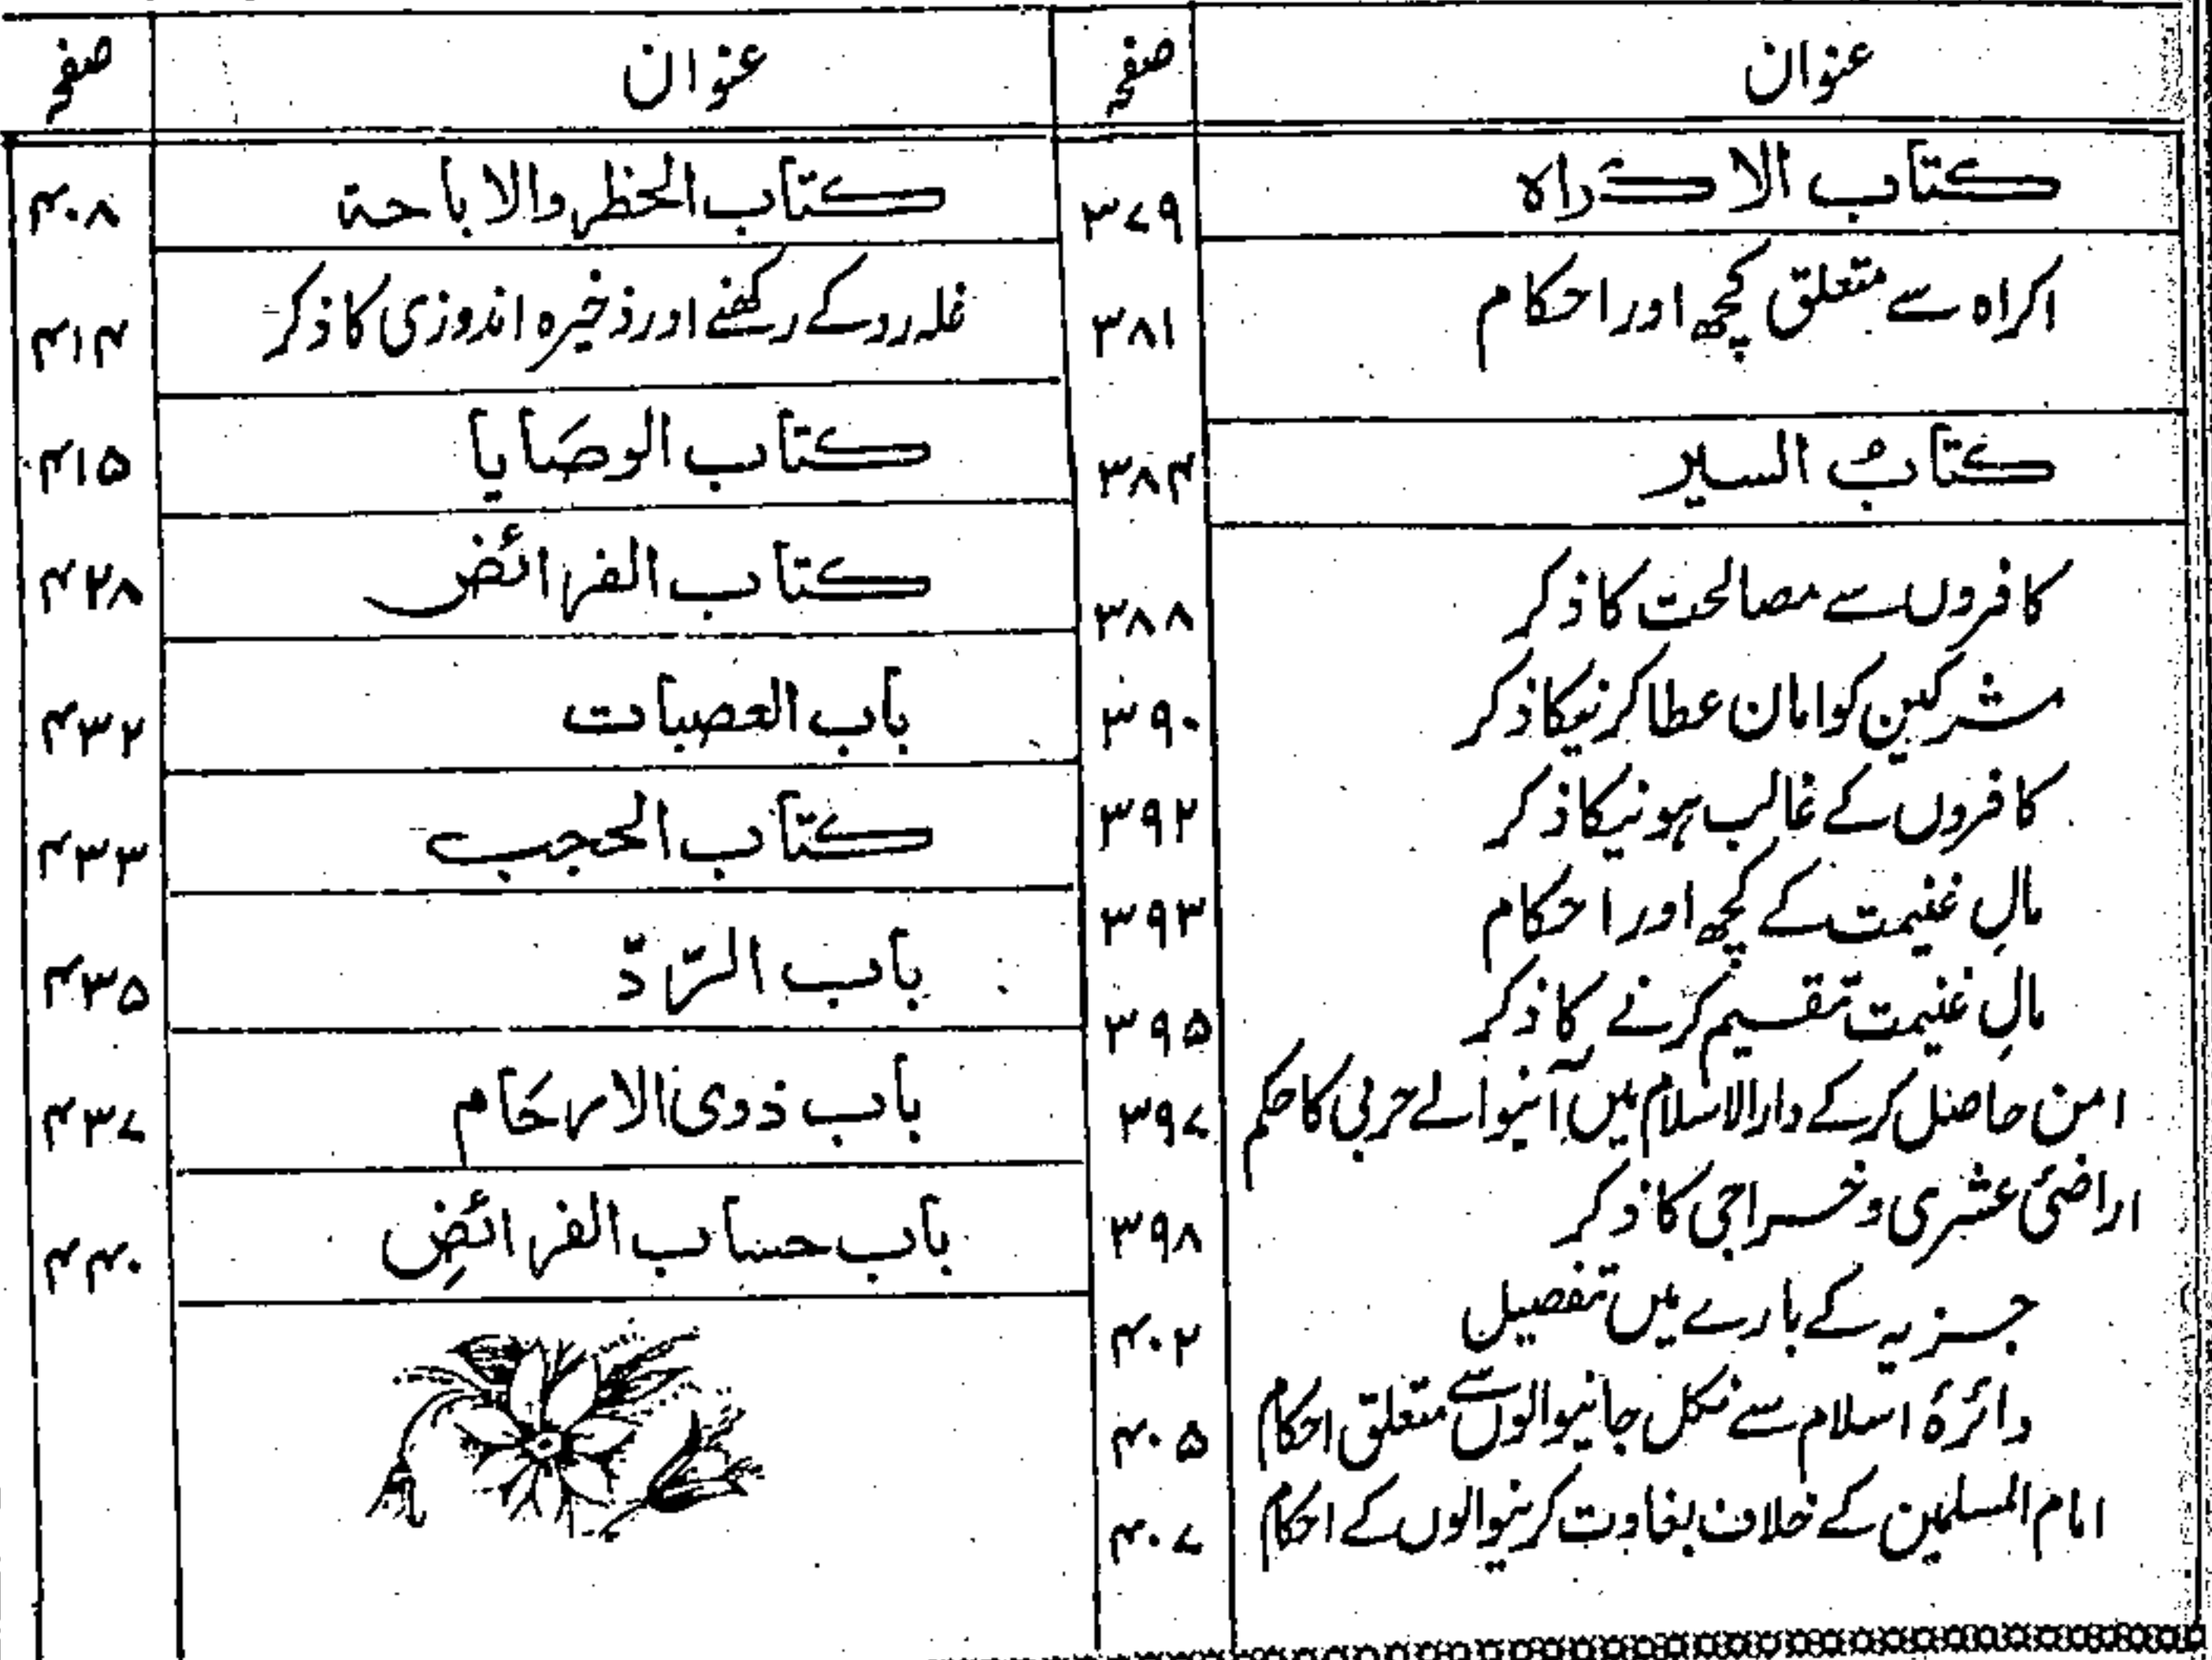 عنوان صفحہ
کتاب الاکراہ ۳۷۹
اکراہ سے متعلق کچھ اور احکام ۳۸۱
کتاب السیر ۳۸۴
کافروں سے مصالحت کا ذکر ۳۸۸
مشرکین کو امان عطا کرنیکا ذکر ۳۹۰
کافروں کے غالب ہونیکا ذکر ۳۹۲
مالِ غنیمت کے کچھ اور احکام ۳۹۳
مالِ غنیمت تقسیم کرنے کا ذکر ۳۹۵
امن حاصل کرکے دارالاسلام میں آنیوالے حربی کا حکم ۳۹۷
اراضیٔ عشری و خراجی کا ذکر ۳۹۸
جزیہ کے بارے میں تفصیل ۴۰۲
دائرۂ اسلام سے نکل جانیوالوں سے متعلق احکام ۴۰۵
امام المسلمین کے خلاف بغاوت کرنیوالوں کے احکام ۴۰۷
عنوان صفحہ
کتاب الحظر والاباحۃ ۴۰۸
غلہ روکے رکھنے اور ذخیرہ اندوزی کا ذکر ۴۱۴
کتاب الوصَایا ۴۱۵
کتاب الفرائض ۴۲۸
باب العصبات ۴۳۲
کتاب الحجب ۴۳۳
باب الرّدّ ۴۳۵
باب ذوی الارحَام ۴۳۷
باب حساب الفرائضِ ۴۴۰